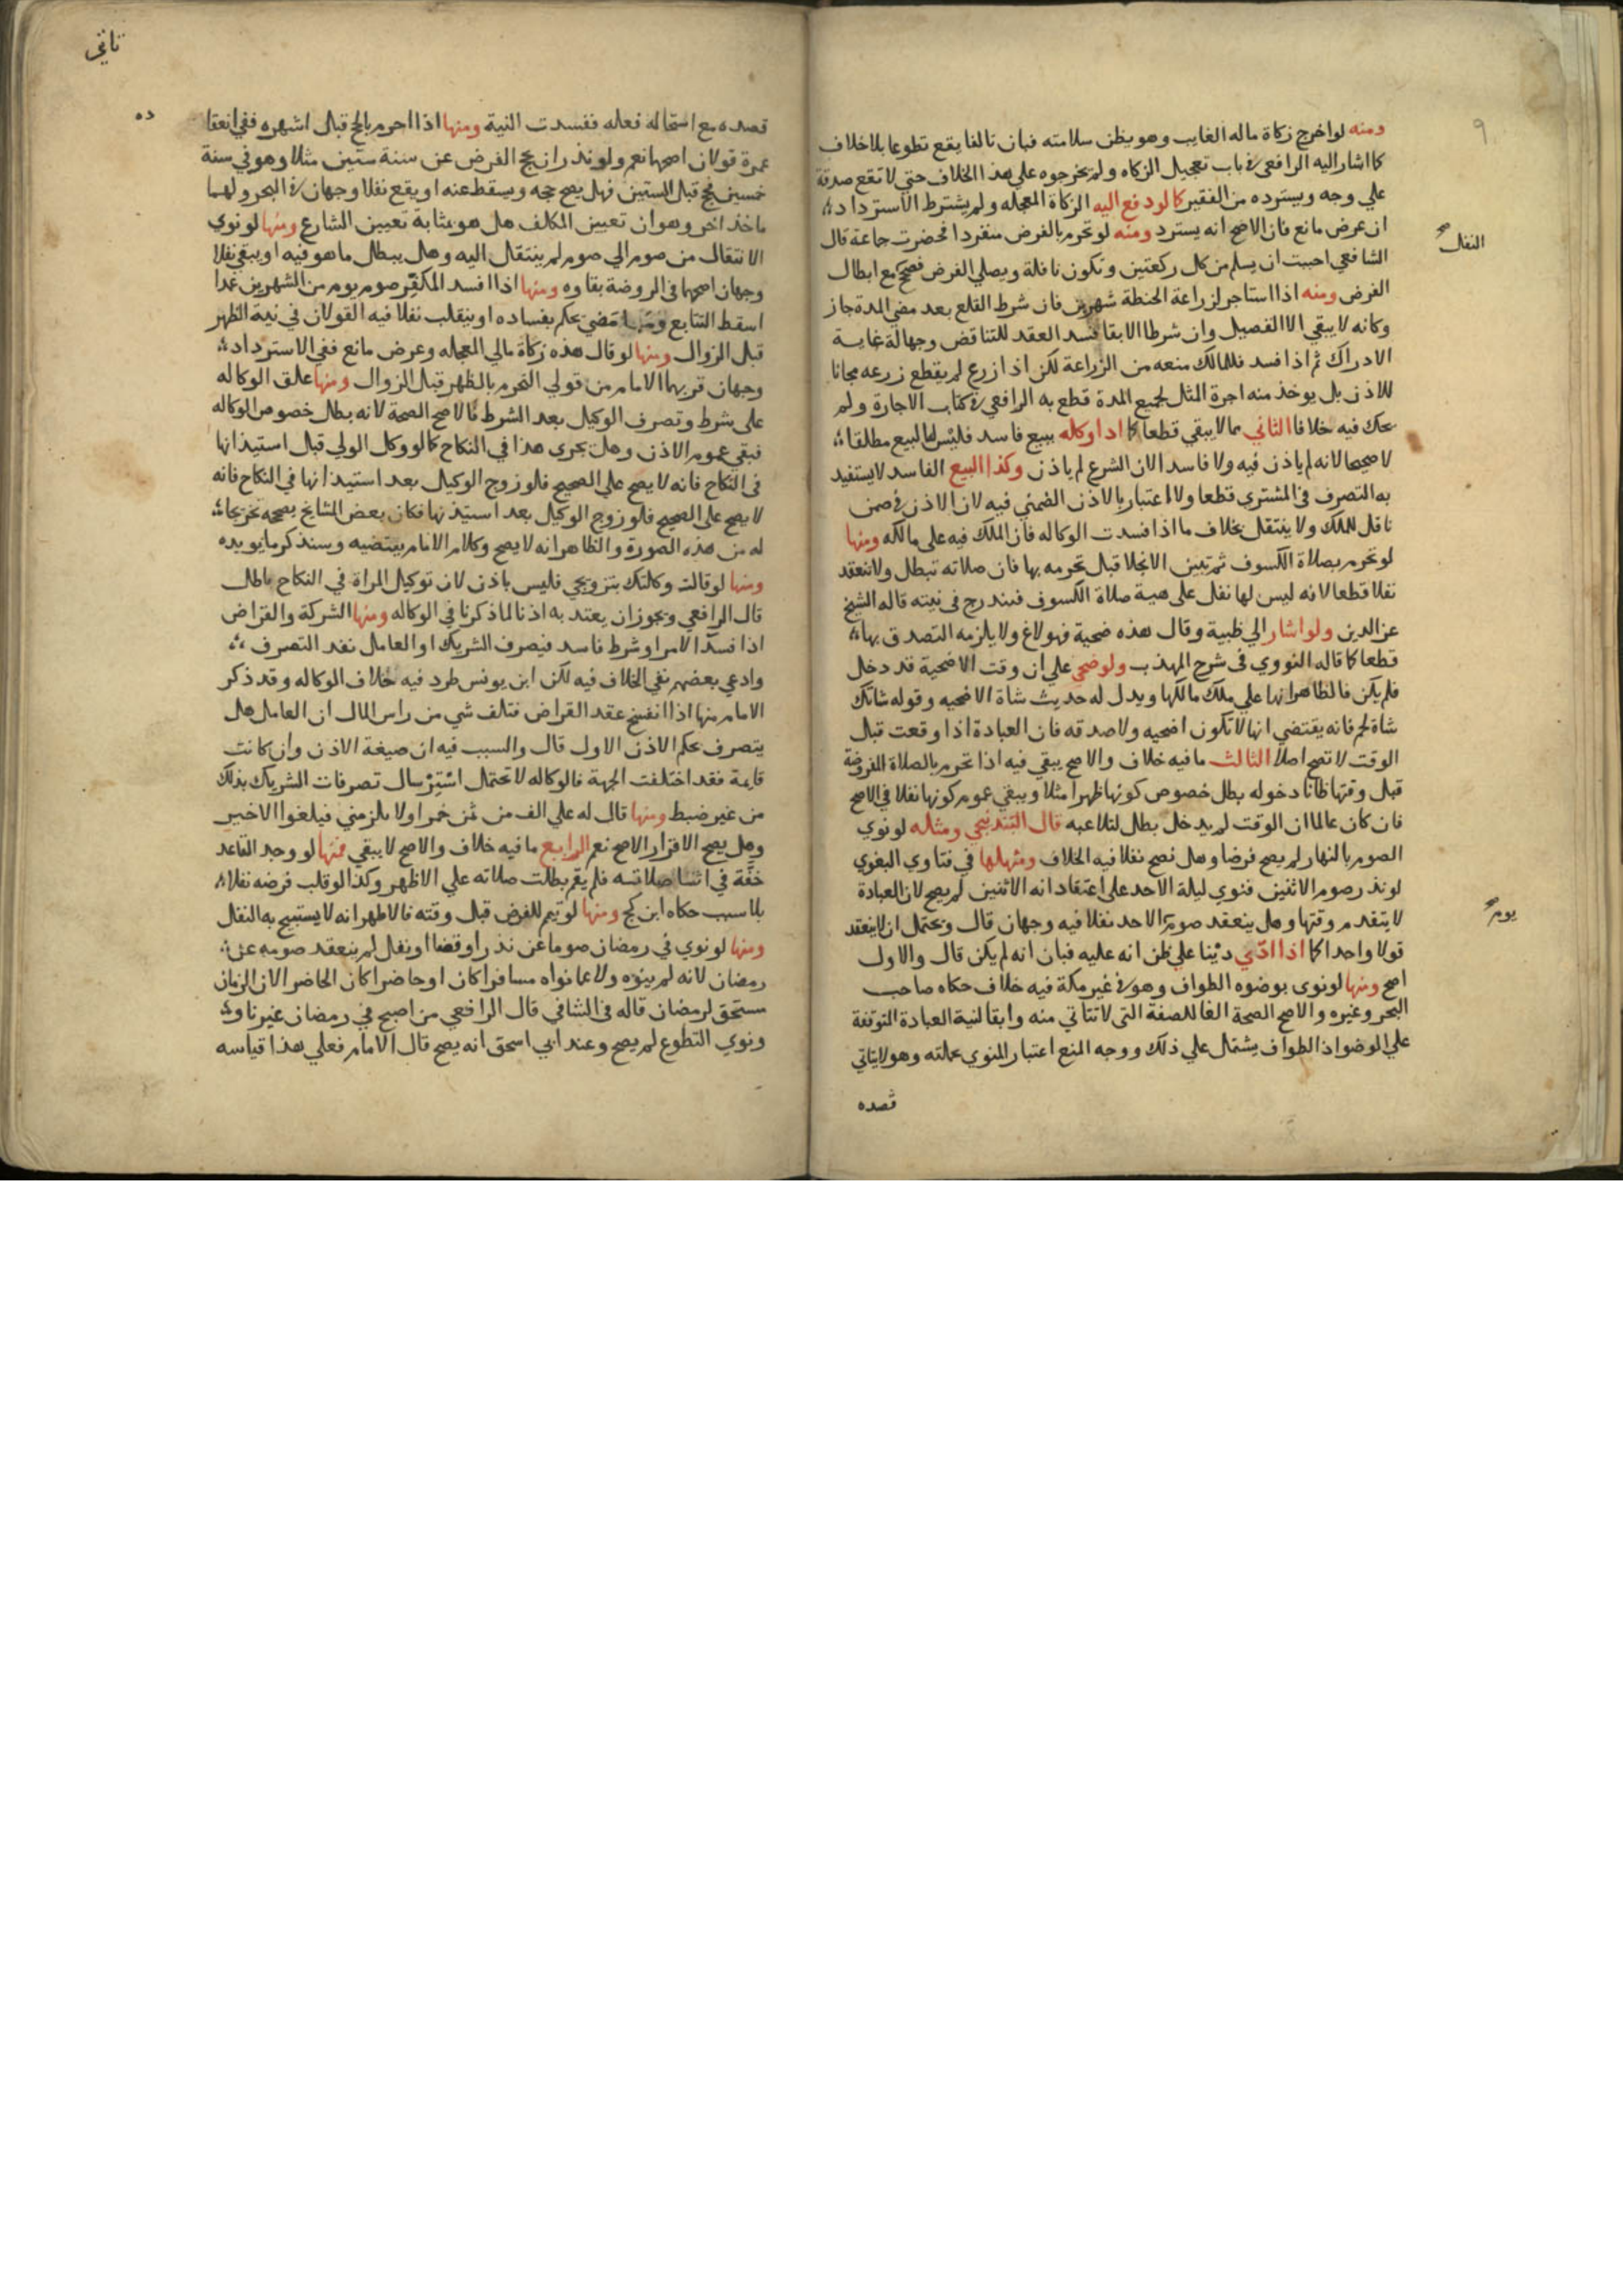 ومنه لو اخرج زكاة ماله الغايب وهو يظن سلامته فبان تالفا يقع تطوعا بلا خلاف
كما اشار اليه الرافعي في باب تعجيل الزكاه ولم يخرجوه علي هذا الخلاف حتي لا تقع صدقة
علي وجه ويسترده من الفقير كما لو دفع اليه الزكاة المعجله ولم يشترط الاسترداد
ان عرض مانع فان الاصح انه يسترد ومنه لو تحرم بالفرض منفردا فحضرت جماعة قال
النفل
الشافعي احببت ان يسلم من كل ركعتين وتكون نافلة ويصلي الفرض فصح مع ابطال
الفرض ومنه اذا استاجر لزراعة الحنطة شهرين فان شرط القلع بعد مضي المدة جاز
وكانه لا يبقي الا الفصيل وان شرطا الابقا فسد العقد للتناقض وجهالة غاية
الادراك ثم اذا فسد فللمالك منعه من الزراعة لكن اذا زرع لم يقطع زرعه مجانا
للاذن بل يوخذ منه اجرة المثل لجميع المدة قطع به الرافعي في كتاب الاجارة ولم
يحك فيه خلافا الثاني ما لا يبقي قطعا كما اذا وكله ببيع فاسد فليس له البيع مطلقا
لا صحيحا لانه لم ياذن فيه ولا فاسدا لان الشرع لم ياذن وكذا البيع الفاسد لا يستفيد
به التصرف في المشتري قطعا ولا اعتبار بالاذن الضمني فيه لان الاذن في ضمن
ناقل للملك ولا ينتقل بخلاف ما اذا فسدت الوكاله فان الملك فيه علي مالكه ومنها
لو تحرم بصلاة الكسوف ثم تبين الانجلا قبل تحرمه بها فان صلاته تبطل ولا تنعقد
نفلا قطعا لانه ليس لها نفل على هيية صلاة الكسوف فيندرج في نيته قاله الشيخ
عز الدين ولو اشار الي ظبية وقال هذه ضحية فهو لاغ ولا يلزمه التصدق بها
قطعا كما قاله النووي في شرح المهذب ولو ضحي علي ان وقت الاضحية قد دخل
فلم يكن فالظاهر انها علي ملك مالكها ويدل له حديث شاة الاضحيه وقوله شاتك
شاة لحم فانه يقتضي انها لا تكون اضحيه ولا صدقه فان العبادة اذا وقعت قبل
الوقت لا تصح اصلا الثالث ما فيه خلاف والاصح يبقي فيه اذا تحرم بالصلاة المفروضة
قبل وقتها ظانا دخوله بطل خصوص كونها ظهرا مثلا ويبقي عموم كونها نفلا في الاصح
فان كان عالما ان الوقت لم يدخل بطل لتلاعبه قال البندنيجي ومثله لو نوي
الصوم بالنهار لم يصح فرضا وهل تصح نفلا فيه الخلاف ومثلها في فتاوي البغوي
لو نذر صوم الاثنين فنوي ليلة الاحد علي اعتقاد انه الاثنين لم يصح لان العبادة
يوم
لا يتقدم وقتها وهل ينعقد صوم الاحد نفلا فيه وجهان قال ويحتمل ان لا ينعقد
قولا واحدا كما اذا ادي دينا علي ظن انه عليه فبان انه لم يكن قال والاول
اصح ومنها لو نوي بوضوه الطواف وهو في غير مكة فيه خلاف حكاه صاحب
البحر وغيره والاصح الصحة الغا للصفة التي لا تتاتي منه وابقا لنية العبادة المتوقفة
علي الوضو اذ الطواف يشتمل علي ذلك ووجه المنع اعتبار المنوي بجملته وهو لا يتاتي
قصده
قصده مع استحالة فعله ففسدت النية ومنها اذا احرم بالحج قبل اشهره ففي انعقا
ده
عمرة قولان اصحهما نعم ولو نذر ان يحج الفرض عن سنة ستين مثلا وهو في سنة
خمسين فحج قبل الستين فهل يصح حجه ويسقط عنه او يقع نفلا وجهان في البحر ولهما
ماخذ اخر وهو ان تعيين المكلف هل هو بمثابة تعيين الشارع ومنها لو نوي
الانتقال من صوم الي صوم لم ينتقل اليه وهل يبطل ما هو فيه او يبقي نفلا
وجهان اصحهما في الروضة بقاوه ومنها اذا افسد المكفر صوم يوم من الشهرين عمدا
اسقط التتابع وما مضي يحكم بفساده او ينقلب نفلا فيه القولان في نية الظهر
قبل الزوال ومنها لو قال هذه زكاة مالي المعجله وعرض مانع ففي الاسترداد
وجهان قربهما الامام من قولي التحرم بالظهر قبل الزوال ومنها علق الوكاله
علي شرط وتصرف الوكيل بعد الشرط فالاصح الصحة لانه بطل خصوص الوكاله
فبقي عموم الاذن وهل يجري هذا في النكاح كما لو وكل الولي قبل استيذانها
في النكاح فانه لا يصح علي الصحيح فلو زوج الوكيل بعد استيذانها في النكاح فانه
لا يصح علي الصحيح فلو زوج الوكيل بعد استيذنها فكان بعض المشايخ يصححه تخريجا
له من هذه الصورة والظاهر انه لا يصح وكلام الامام يقتضيه وسنذكر ما يويده
ومنها لو قالت وكلتك بتزويجي فليس باذن لان توكيل المراة في النكاح باطل
قال الرافعي ويجوز ان يعتد به اذنا لما ذكرنا في الوكاله ومنها الشركة والقراض
اذا فسدا لامر او شرط فاسد فيصرف الشريك او العامل نفذ التصرف
وادعي بعضهم نفي الخلاف فيه لكن ابن يونس طرد فيه خلاف الوكاله وقد ذكر
الامام منها اذا انفسخ عقد القراض فتلف شي من راس المال ان العامل هل
يتصرف بحكم الاذن الاول قال والسبب فيه ان صيغة الاذن وان كانت
قايمة فقد اختلفت الجهة فالوكاله لا تحتمل استرسال تصرفات الشريك بذلك
من غير ضبط ومنها قال له علي الف من ثمن خمر او لا يلزمني فيلغوا الاخير
وهل يصح الاقرار الاصح نعم الرابع ما فيه خلاف والاصح لا يبقي فمنها لو وجد القاعد
خفة في اثنا صلاته فلم يقم بطلت صلاته علي الاظهر وكذا لو قلب فرضه نفلا
بلا سبب حكاه ابن كج ومنها لو تيمم للفرض قبل وقته فالاظهر انه لا يستبيح به النفل
ومنها لو نوي في رمضان صوما عن نذر او قضا او نفل لم ينعقد صومه عن
رمضان لانه لم ينوه ولا عما نواه مسافرا كان او حاضرا كان الحاضر الان الزمان
مستحق لرمضان قاله في الشافي قال الرافعي من اصبح في رمضان غير ناو
ونوي التطوع لم يصح وعند ابي اسحق انه يصح قال الامام فعلي هذا قياسه